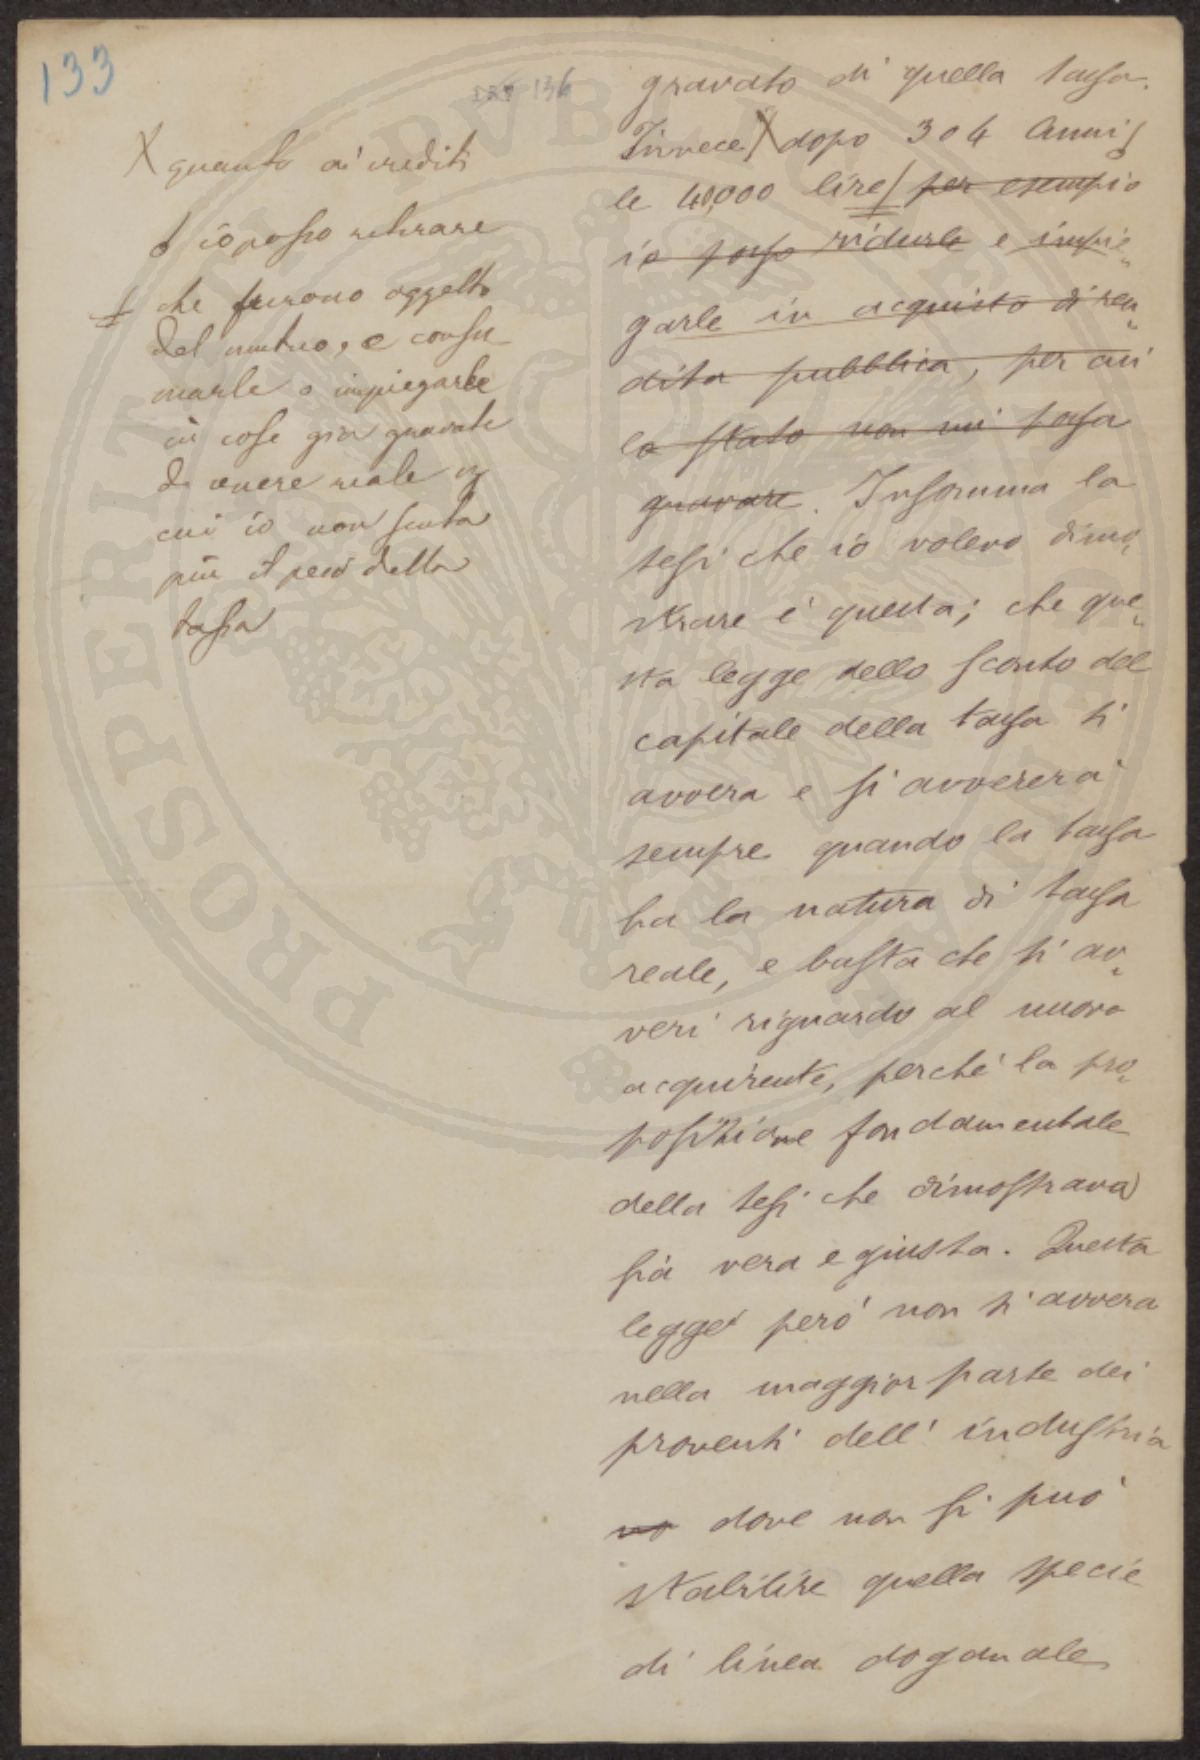 133
136
X quanto ai crediti
io posso ritirare
che furono oggetto
del mutuo, e consu
marle o impiegarle
in cose già gravate
di onere reale
cui io non senta
più il peso della
tassa
gravato di quella tassa.
Invece X dopo 3 o 4 anni
le 40,000 lire per esempio
io posso ridurle e impie„
garle in acquisto di ren„
dita pubblica, per cui
lo Stato non mi possa
gravare. Insomma la
tesi che io volevo dimo„
strare è questa; che que„
sta legge dello sconto del
capitale della tassa si
avvera e si avvererà
sempre quando la tassa
ha la natura di tassa
reale, e basta che si av„
veri riguardo al nuovo
acquirente, perchè la pro„
posizione fondamentale
della tesi che dimostrava
sia vera e giusta. Questa
legge però non si avvera
nella maggior parte dei
proventi dell' industria
no dove non si può
stabilire quella specie
di linea doganale
PROSPERITÀ PVBLICAE